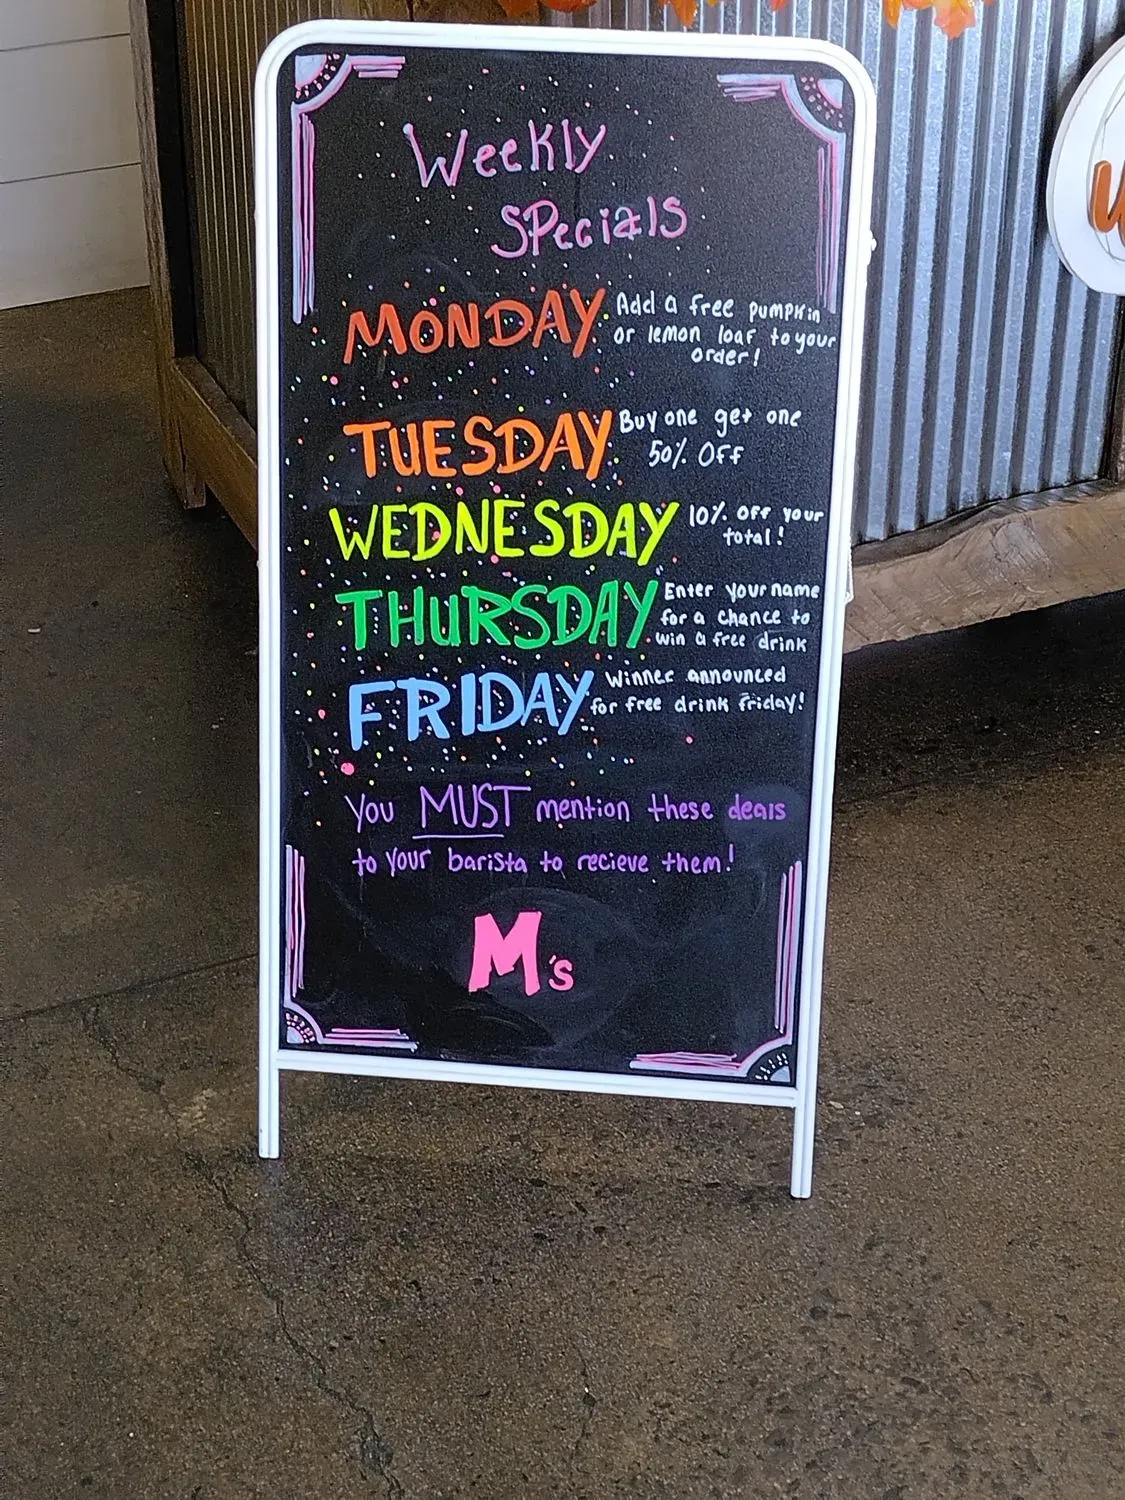 Weekly
Specials
MONDAY
Add a free pumpkin
or lemon loaf to your
order!
TUESDAY
Buy one get one
50% Off
WEDNESDAY
10% off your
total!
THURSDAY
Enter your name
for a chance to
win a free drink
FRIDAY
Winner announced
for free drink friday!
You MUST mention these deals
to your barista to recieve them!
M's